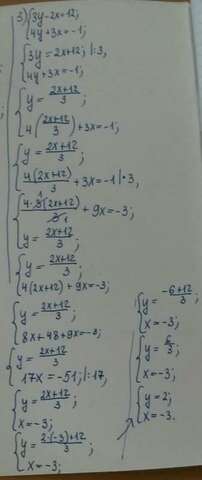 3) {3y-2x=12;
4y+3x=-1;
{3y=2x+12; |:3,
4y+3x=-1;
{y=\frac{2x+12}{3};
4(\frac{2x+12}{3})+3x=-1;
{y=\frac{2x+12}{3};
\frac{4(2x+12)}{3}+3x=-1|·3,
{\frac{4·3(2x+12)}{3}+9x=-3;
y=\frac{2x+12}{3};
{y=\frac{2x+12}{3};
4(2x+12)+9x=-3;
{y=\frac{2x+12}{3};
8x+48+9x=-3;
{y=\frac{2x+12}{3};
17x=-51;|:17,
{y=\frac{2x+12}{3};
x=-3;
{y=\frac{2·(-3)+12}{3};
x=-3;
{y=\frac{-6+12}{3};
x=-3;
{y=\frac{6}{3};
x=-3;
{y=2;
x=-3.